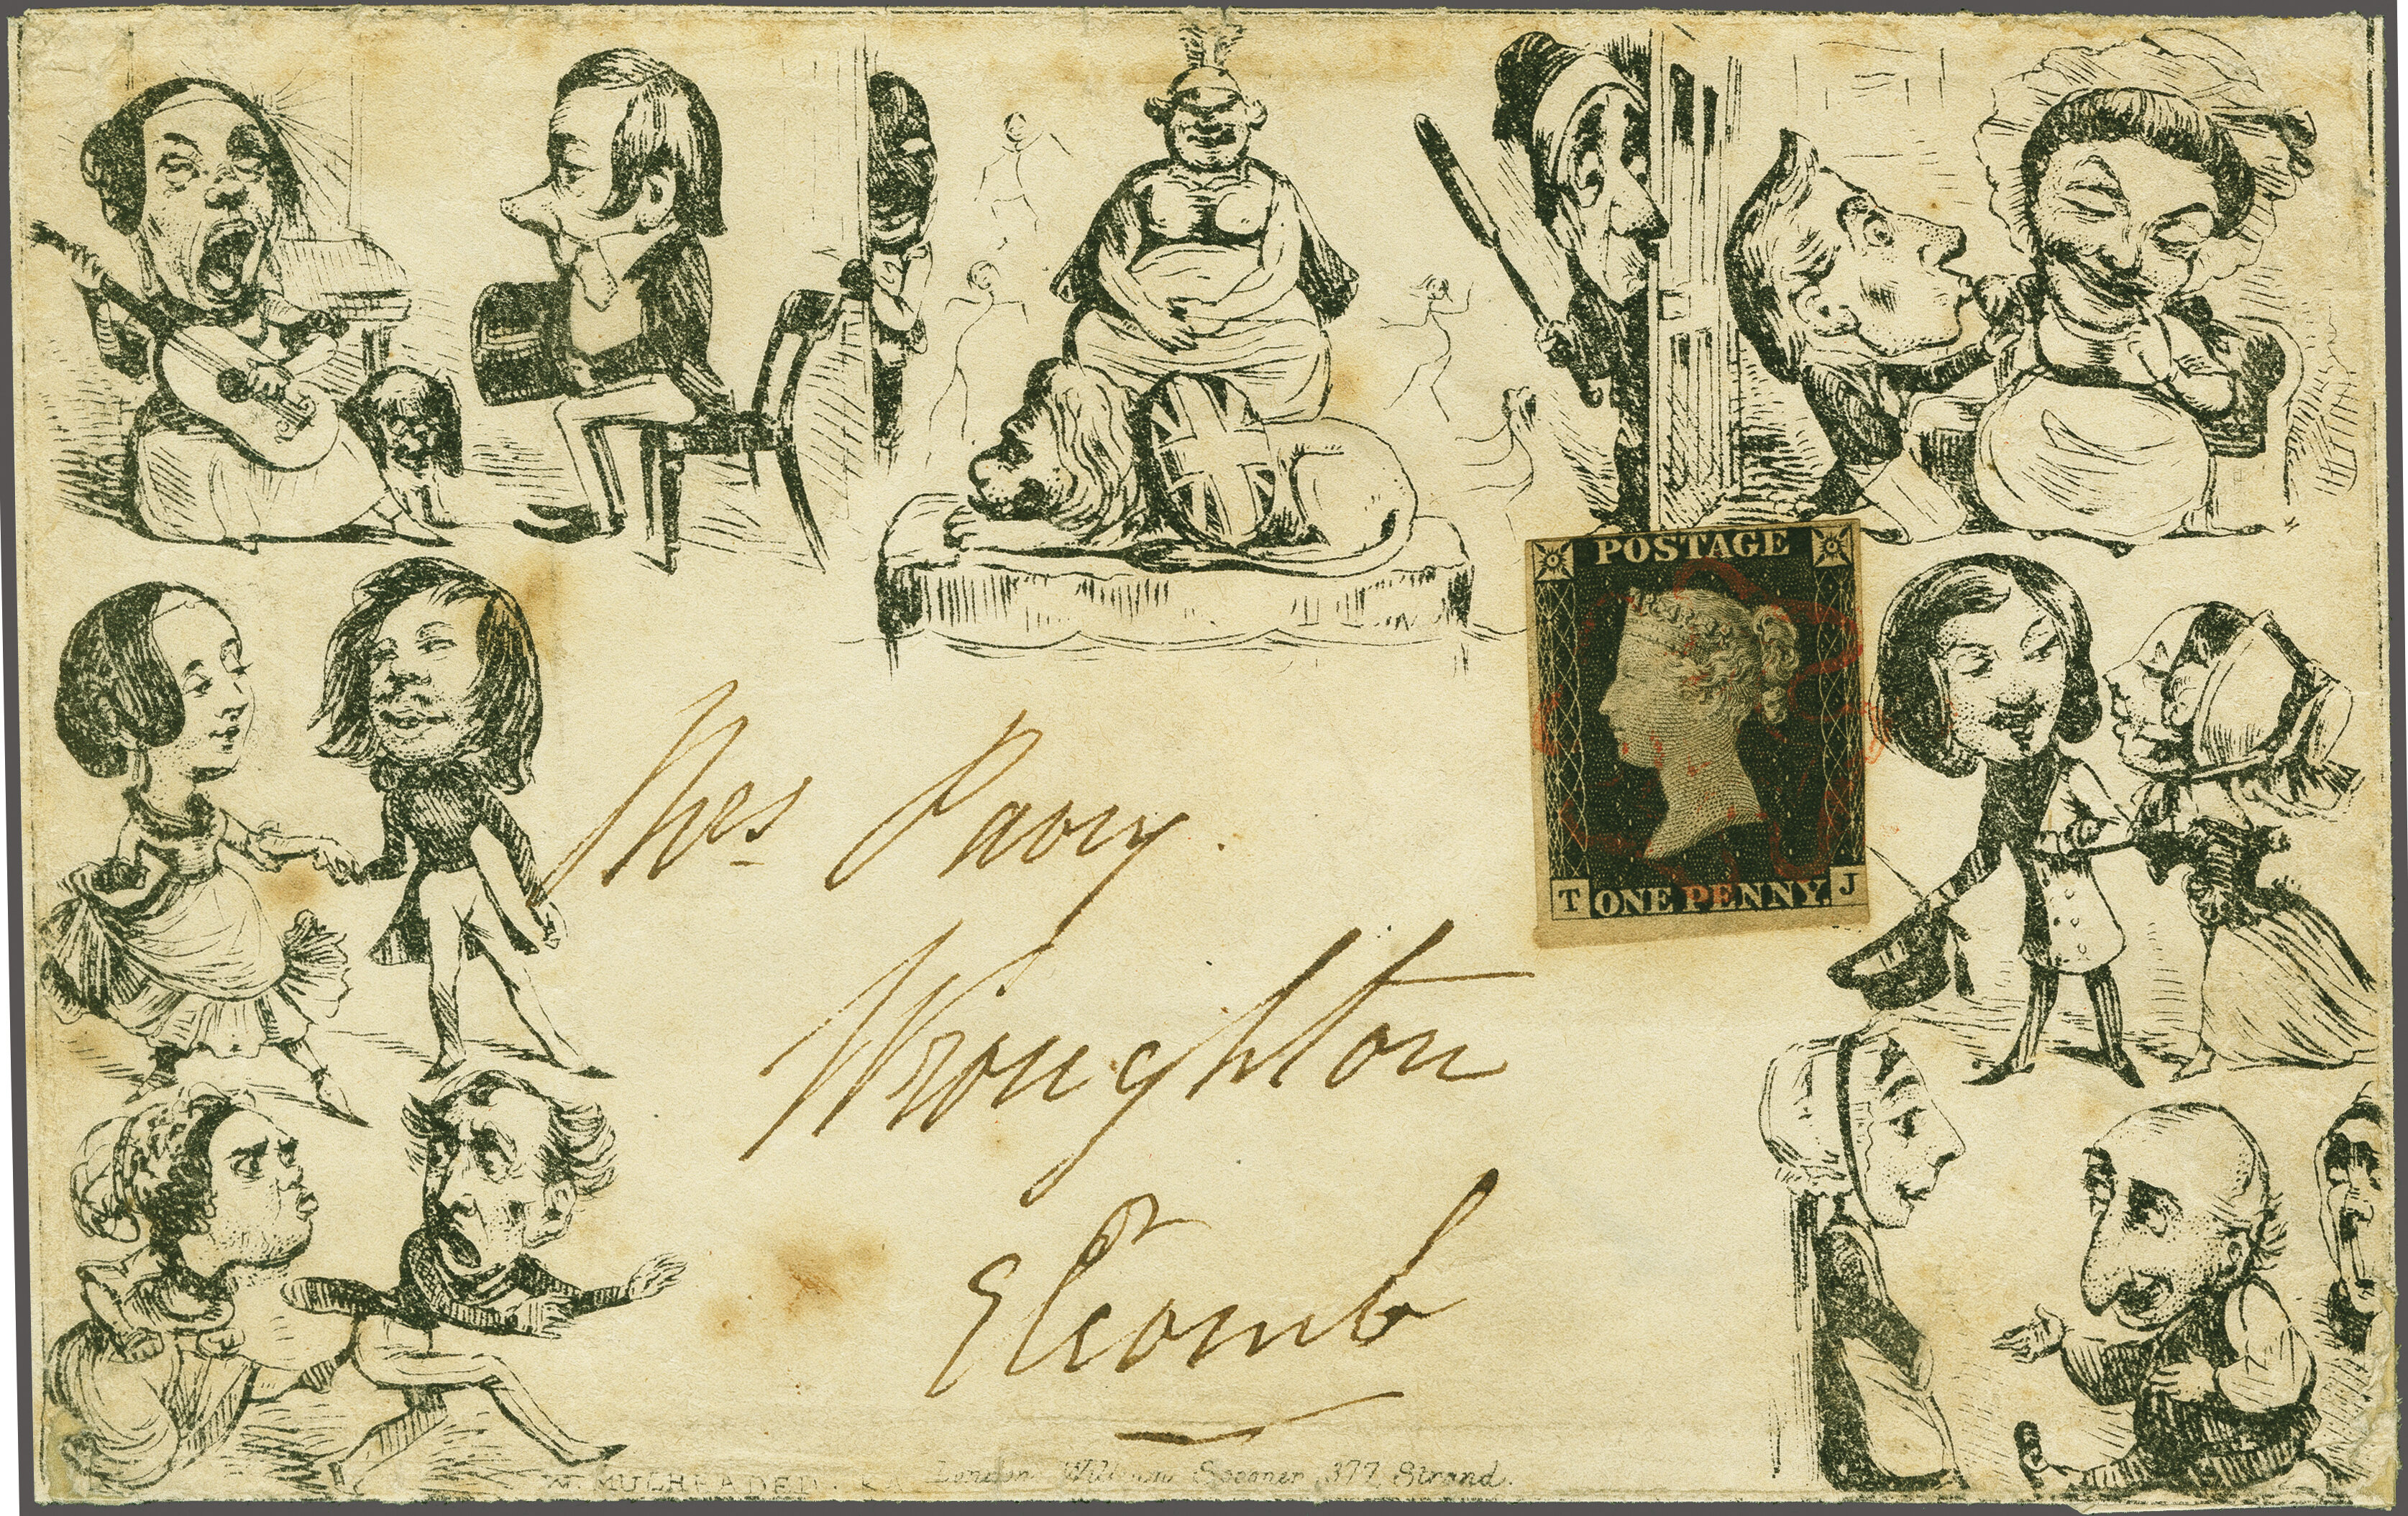 POSTAGE
T ONE PENNY. J
Mrs Pavry.
Wroughton
Elcomb
W. MULHEADED. R.A.
London William Spooner 377 Strand.